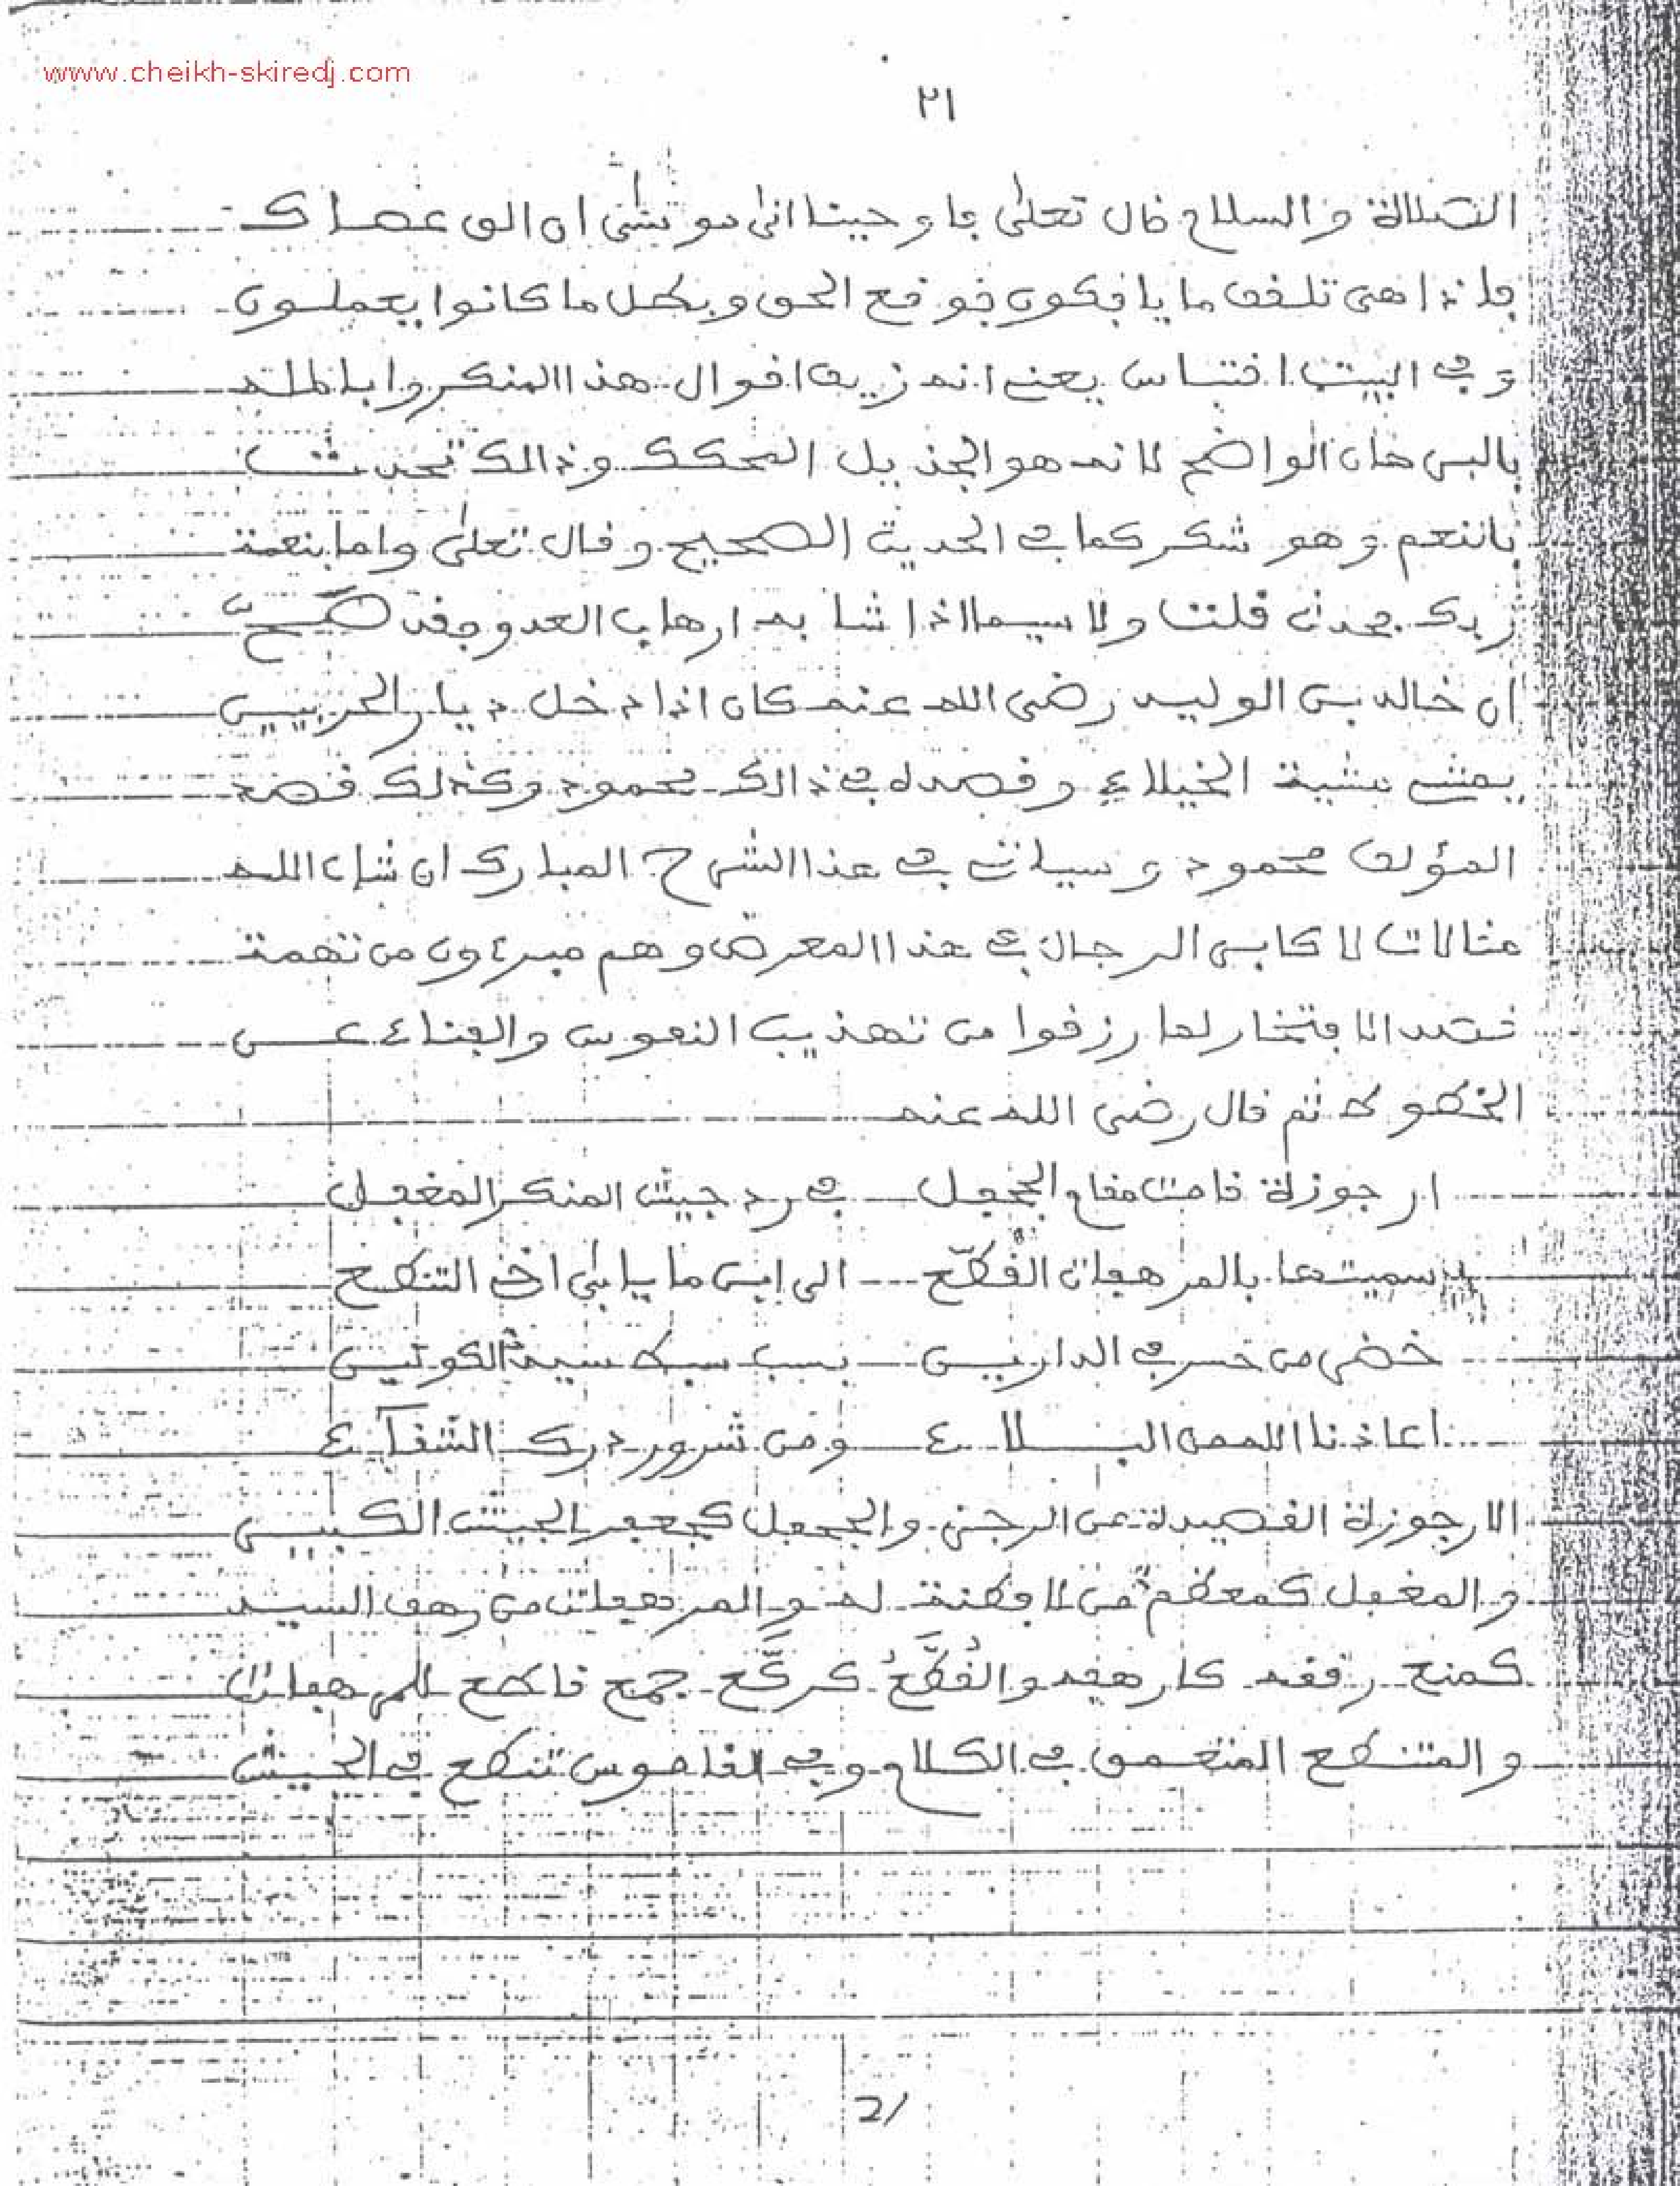 www.cheikh-skiredj.com
٢١
الصلاة والسلام قال تعلى فاوحينا الى موسى ان الق عصاك
فاذا هى تلقف ما يافكون فوقع الحق وبطل ما كانوا يعملون
وفى البيت اقتباس يعنى انه زيف اقوال هذا المنكر وابا طله
بالبرهان الواضح لانه هو الجذيل المحكك وذالك تحدثا
بالنعم وهو شكر كما فى الحديث الصحيح وقال تعلى واما بنعمة
ربك فحدث قلت ولا سيما اذا شا به ارهاب العدو فقد صح
ان خالد بن الوليد رضى الله عنه كان اذا دخل ديار الحربيين
يمشى مشية الخيلاء وقصده فى ذالك محمود وكذلك قصد
المؤلف محمود وسياتى فى هذا الشرح المبارك ان شاء الله
مثالات لاكابر الرجال فى هذا المعرض وهم مبرءون من تهمة
قصد الافتخار لما رزقوا من تهذيب النفوس والفناء عن
الحظوظ ثم قال رضى الله عنه
ارجوزة قامت مقام الجحفل فى رد جيش المنكر المغفل
سميتها بالمرهفات القطع الى ابن مايابى اخى التنطع
خضم من خسر فى الدارين بسبب سبه سيد الكونين
اعاذنا الله من البلاء ومن شرور درك الشقآء
الارجوزة القصيدة من الرجز والجحفل كجعفر الجيش الكبير
والمغفل كمعظم من لا فطنة له والمرهفات من رهف السيف
كمنع رققه كارهفه والقطع كركع جمع قاطع للمرهفات
والمتنطع المتعمق فى الكلام وفى القاموس تنطع فى
21